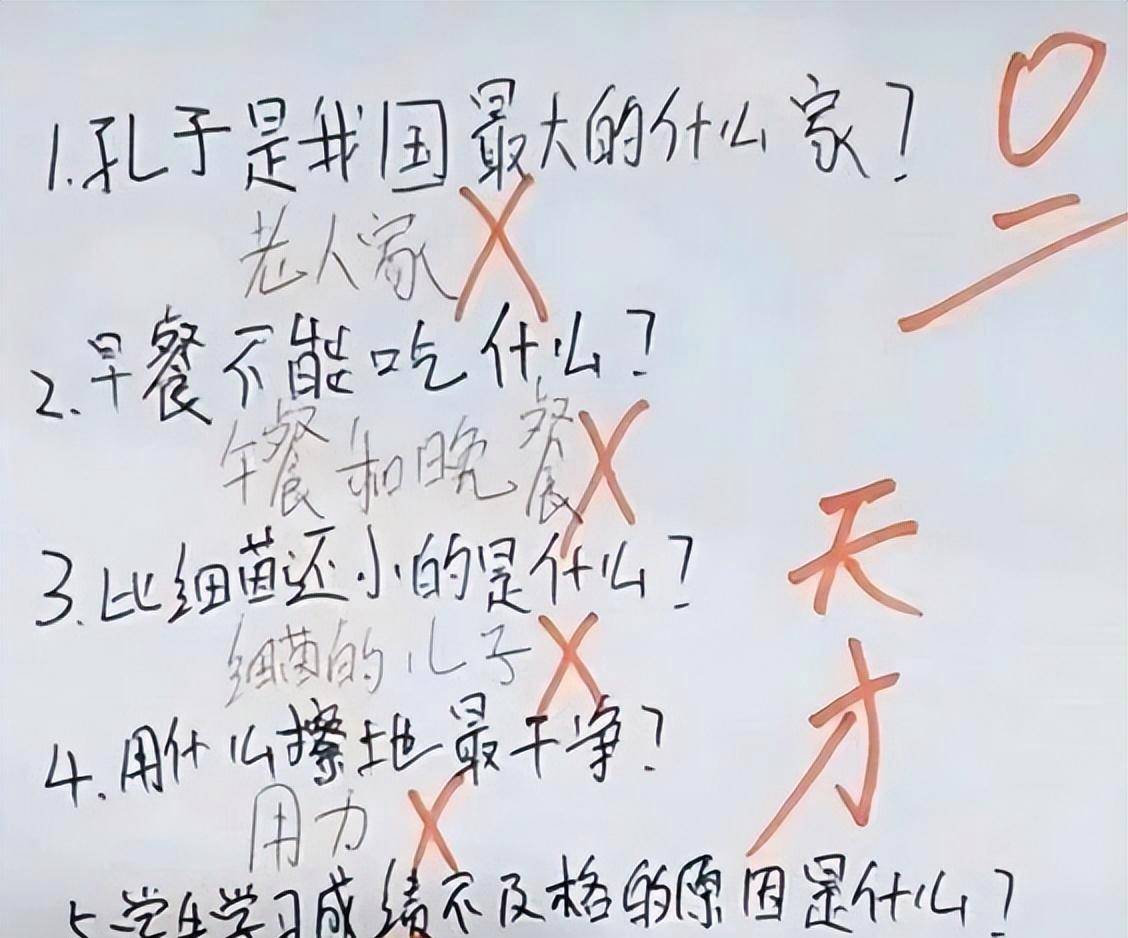 1.孔子是我国最大的什么家?
老人家
2.早餐不能吃什么?
午餐和晚餐
3.比细菌还小的是什么?
细菌的儿子
4.用什么擦地最干净?
用力
5.学生学习成绩不及格的原因是什么?
0
天才